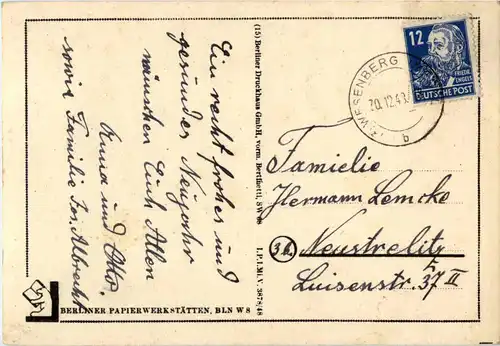 Ein recht frohes und
gesundes Neujahr
wünschen Euch Allen
Anna und Otto.
sowie Familie Jos. Albrecht
(15) Berliner Druckhaus GmbH, vorm. Bertinetti, SW 68
I.P.I.Mi.V. 3878/48
BERLINER PAPIERWERKSTÄTTEN, BLN W 8
WESENBERG
20.12.48
b
12
FRIEDR. ENGELS
DEUTSCHE POST
Familie
Hermann Lemcke
(3b) Neustrelitz
Luisenstr. 37 II